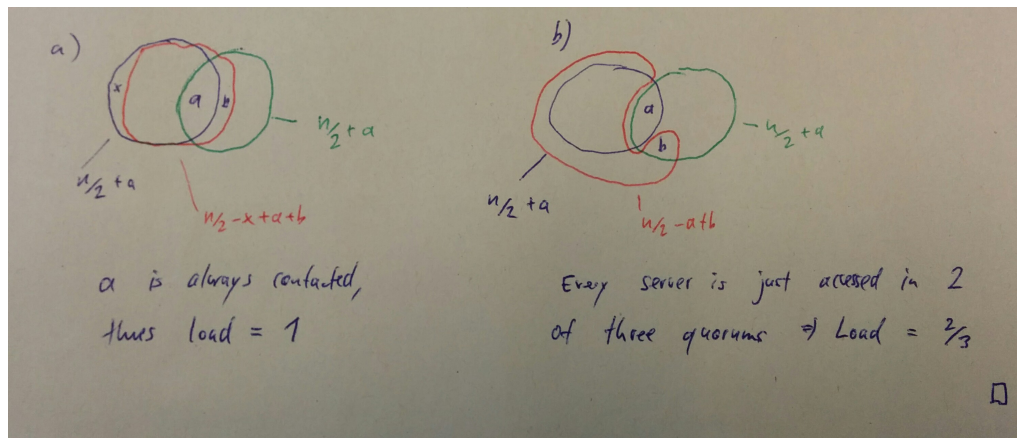 a)
x
a
b
n/2 + a
n/2 + a
n/2 - x + a + b
a is always contacted,
thus load = 1
b)
a
b
n/2 + a
n/2 + a
n/2 - a + b
Every server is just accessed in 2
of three quorums ⇒ Load = 2/3
□